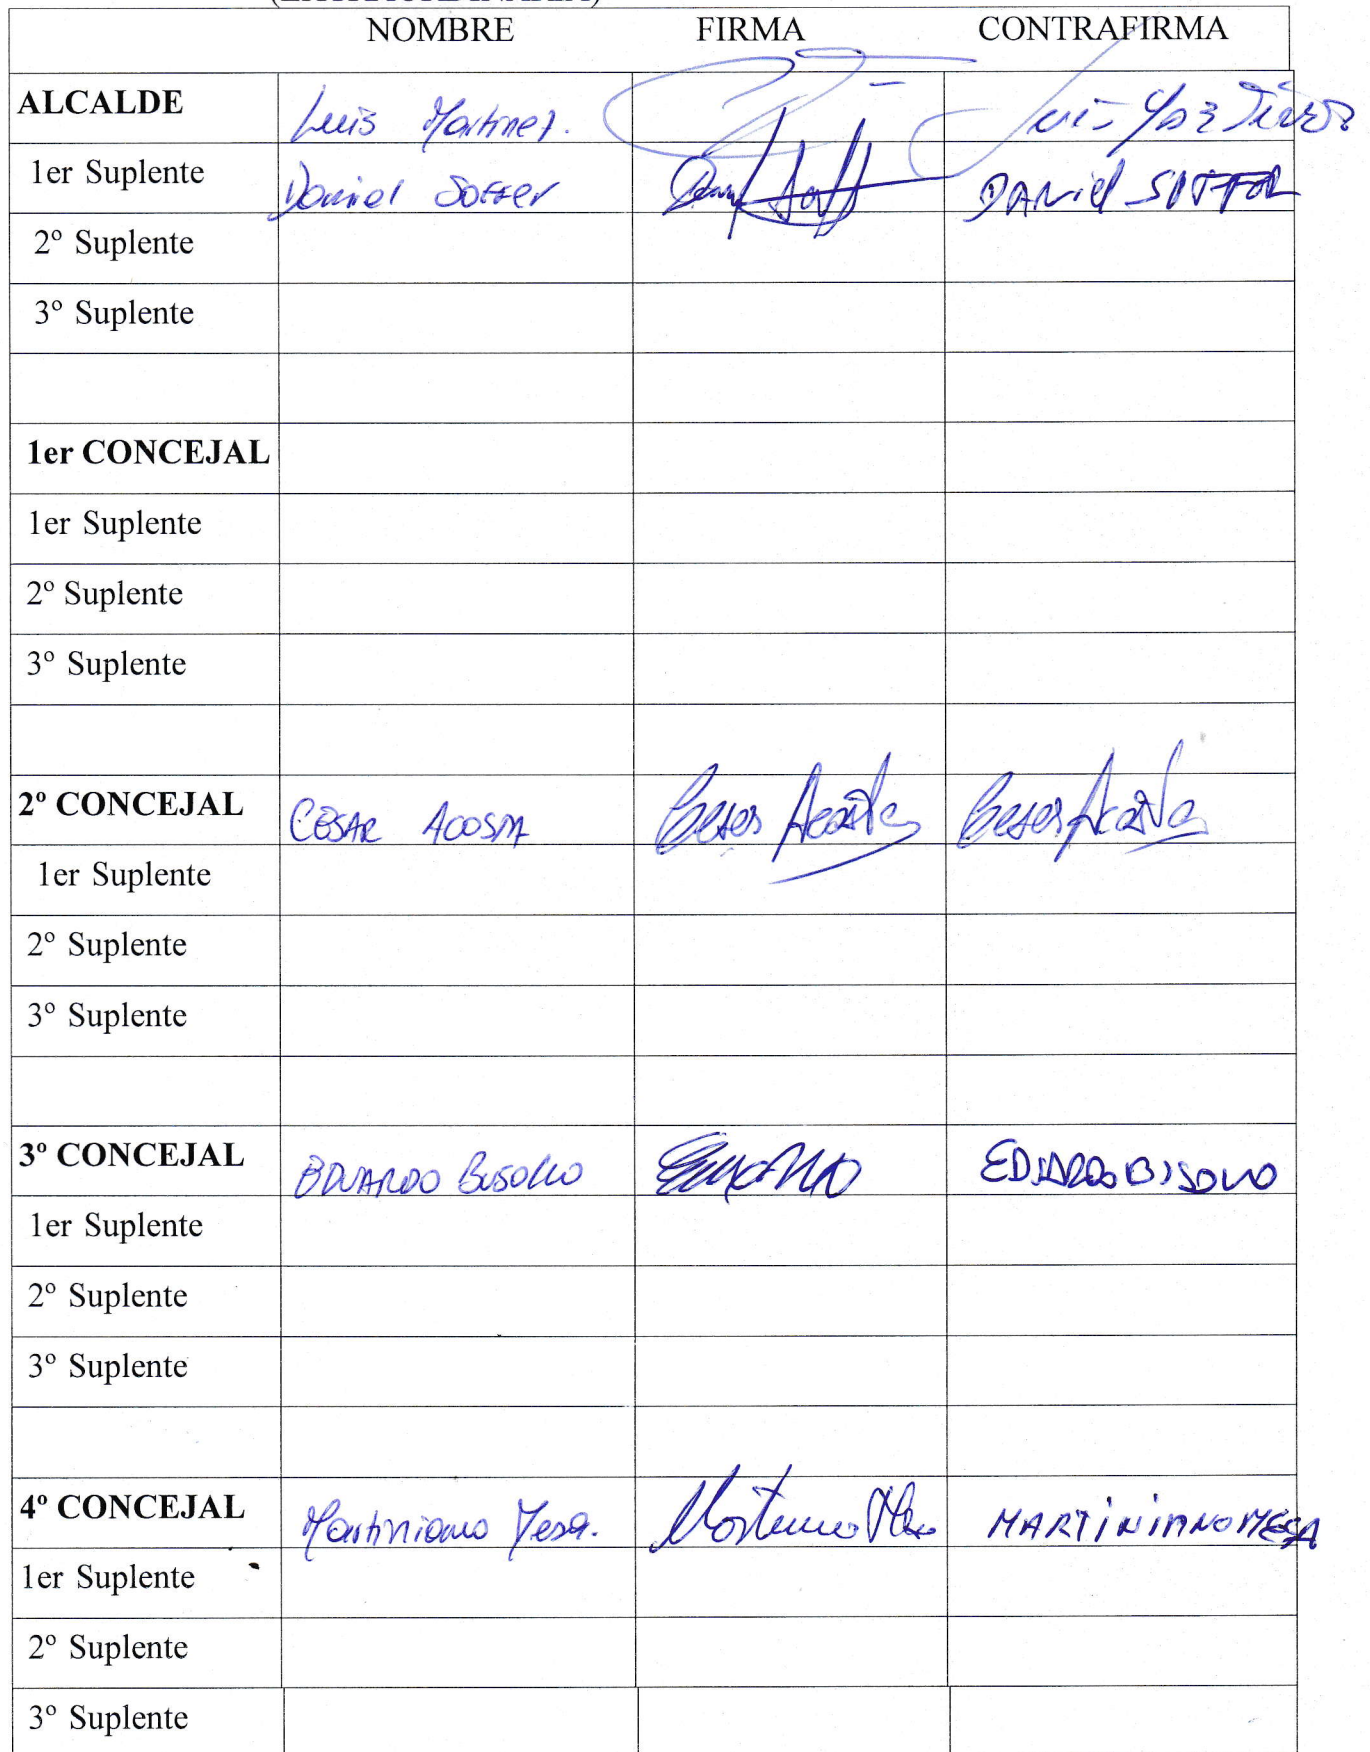 NOMBRE FIRMA CONTRAFIRMA
ALCALDE Luis Martinez.
1er Suplente Daniel
2º Suplente
3º Suplente
1er CONCEJAL
1er Suplente
2º Suplente
3º Suplente
2º CONCEJAL CESAR ACOSTA Cesar Acosta Cesar Acosta
1er Suplente
2º Suplente
3º Suplente
3º CONCEJAL EDUARDO
1er Suplente
2º Suplente
3º Suplente
4º CONCEJAL Martiniano Mesa. MARTINIANO MESA
1er Suplente
2º Suplente
3º Suplente